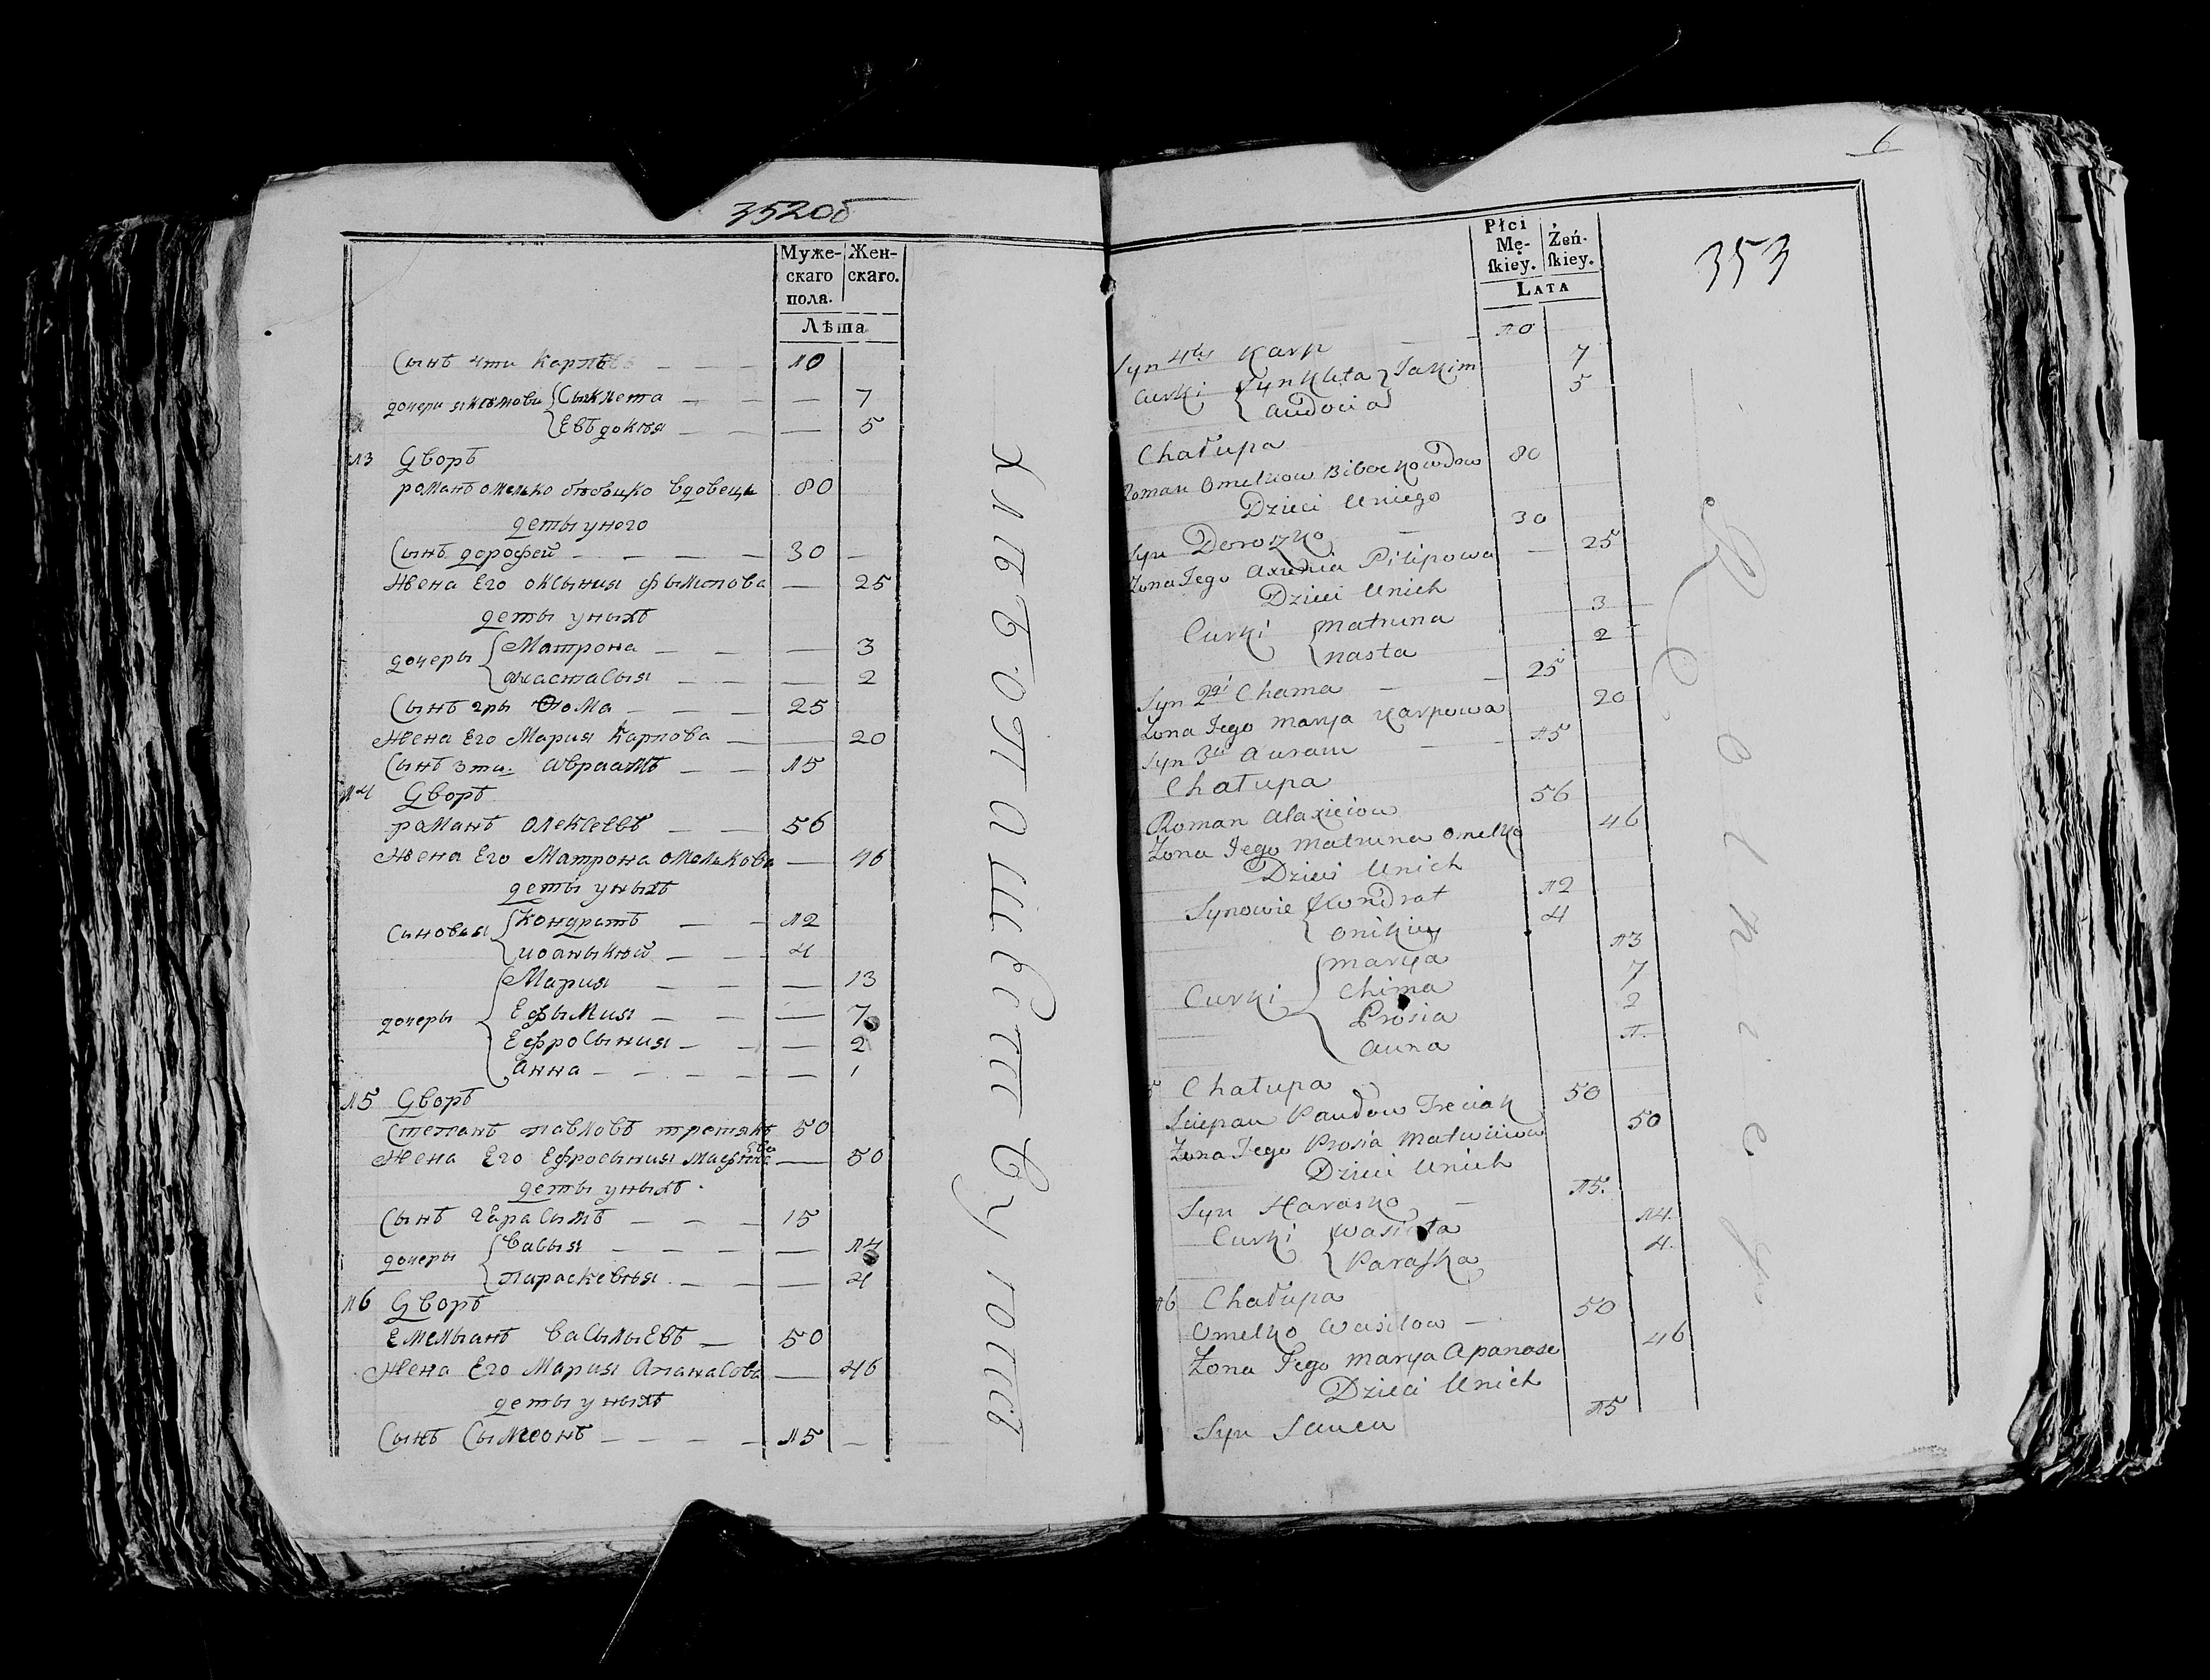 352об
Муже-
скаго
пола.
Жен-
скаго.
Лѣта
Сынъ 4ти Карпъ — — — 10
дочери якимови Сыклета — — — 7
Евъдокѣя — — — 5
13 Дворъ
романъ омелько бѣбицко вдовець 80
деты унего
Сынъ дорофей — — — — 30 —
Жена Его оксыния фылипова — 25
деты уныхъ
дочеры Матрона — — — 3
анастасыя — — — 2
Сынъ 2ры Фома — — — 25
Жена Его Мария Карпова — — 20
Сынъ 3ти. Авраамъ — — 15
14 Дворъ
раманъ олексеевъ — — 56
Жена Его Матрона омелькова — 46
деты уныхъ
Сыновья Кондратъ — — 12
иоаныкѣй — — 4
дочеры Мария — — — 13
Ефымия — — — 7
Ефросыния — — — 2
Анна — — — — — 1
15 Дворъ
Степанъ павловъ третякъ 50
Жена Его Ефросыния Матфѣева — 50
деты уныхъ.
Сынъ герасымъ — — — 15
дочеры Васыя — — — — — 14
параскевѣя — — — 4
16 Дворъ
Емельянъ Васыльевъ — 50
Жена Его Мария Апанасова — 46
деты уныхъ
Сынъ Сымеонъ — — — — 15 —
хлѣбопашествуютъ
6
353
Płci
Mę-
ſkiey.
Żeń-
ſkiey.
LATA
Syn 4ty Karp — — 10
Curki Synkleta Jakim 7
Audocia 5
Chałupa
Roman Omelkow Wdow 80
Dzieci Uniego
Syn Doroszko — 30
Zona Jego Axienia Pilipowa — 25
Dzieci Unich
Curki Matruna 3
Nasta 2
Syn 2gi Chama — — 25
Zona Jego Marya Karpowa 20
Syn 3ci Auram — — 15
Chałupa
Roman Alaxieiow 56
Zona Jego Matruna Omelko 46
Dzieci Unich
Synowie Kondrat 12
Onikiey 4
Curki Marya 13
Chima 7
Prosia 2
Anna 1.
5 Chałupa
Sciepan Paudow Treciak 50
Zona Jego Prosia Matwieiowa 50
Dzieci Unich
Syn Harasko — 15.
Curki Wasiota 14.
Paraska 4.
16 Chałupa
Omelko Wasilow — 50
Zona Jego Marya Apanase 46
Dzieci Unich
Syn Sauca 15
Rolnicy